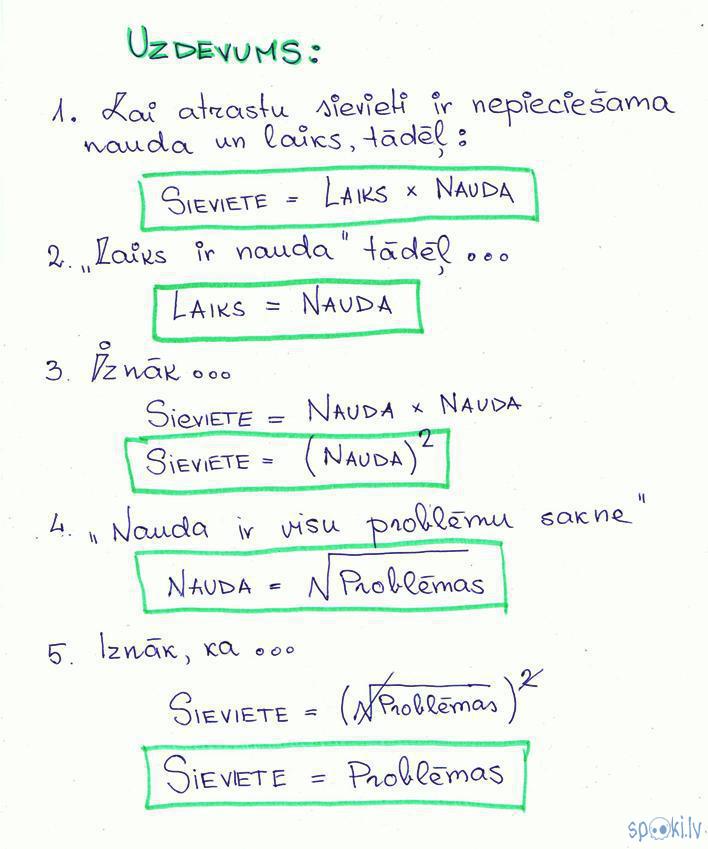 UZDEVUMS:
1. Lai atrastu sievieti ir nepieciešama
nauda un laiks, tādēļ:
SIEVIETE = LAIKS × NAUDA
2. „Laiks ir nauda" tādēļ ...
LAIKS = NAUDA
3. Iznāk ...
SIEVIETE = NAUDA × NAUDA
SIEVIETE = (NAUDA)²
4. „Nauda ir visu problēmu sakne"
NAUDA = √Problēmas
5. Iznāk, ka ...
SIEVIETE = (√Problēmas)²
SIEVIETE = Problēmas
spoki.lv